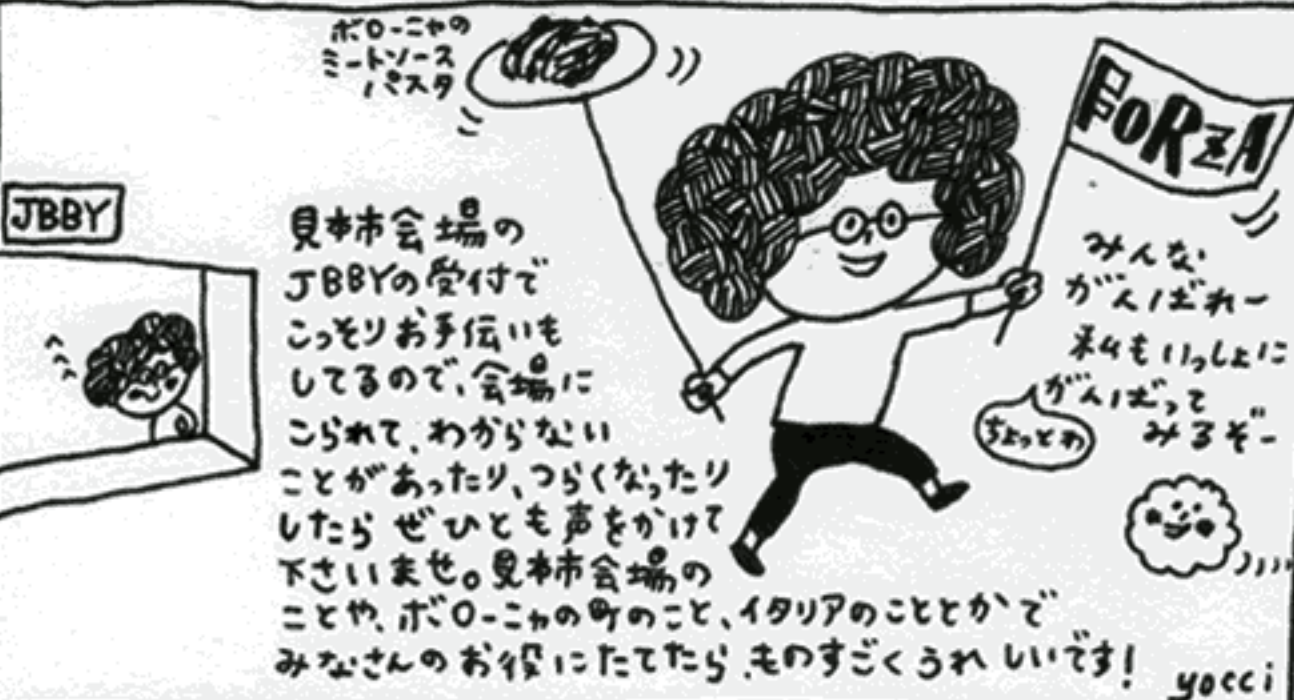 ボローニャの
ミートソース
パスタ
FORZA
JBBY
見本市会場の
JBBYの受付で
こっそりお手伝いも
してるので、会場に
こられて、わからない
ことがあったり、つらくなったり
したら ぜひとも声をかけて
下さいませ。見本市会場の
ことや、ボローニャの町のこと、イタリアのこととかで
みなさんのお役にたてたら、ものすごくうれしいです!
みんな
がんばれー
私もいっしょに
がんばって
みるぞー
ちょっとわ
yocci